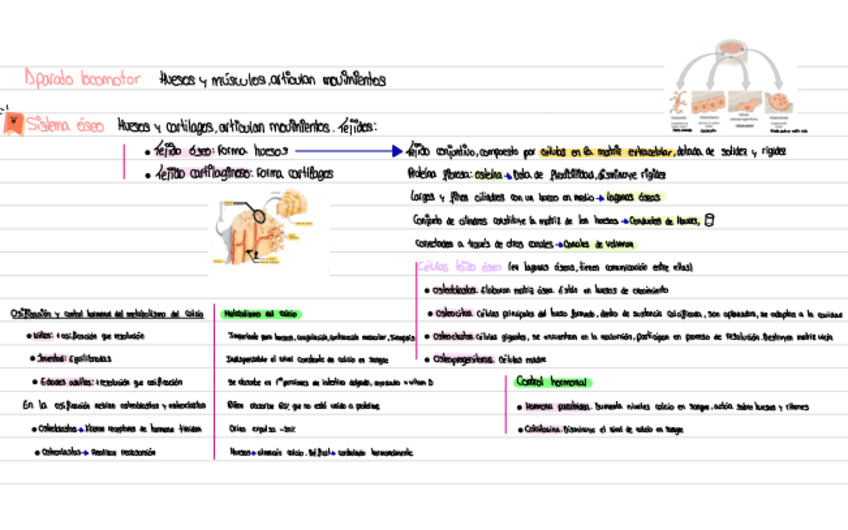 Aparato locomotor Huesos y músculos, articulan movimientos
Sistema óseo Huesos y cartílagos, articulan movimientos. Tejidos:
• Tejido óseo: forma huesos → Tejido conjuntivo, compuesto por células en la matriz extracelular, dotada de solidez y rigidez
• Tejido cartilaginoso: Forma cartílagos
Proteína fibrosa: osteína → Dota de flexibilidad, disminuye rigidez
Largos y finos cilindros con un hueco en medio → lagunas óseas
Conjunto de cilindros constituye la matriz de los huesos → Conductos de Havers,
Conectados a través de otros canales → Canales de Volkman
Células tejido óseo (en lagunas óseas, tienen comunicación entre ellas)
• Osteoblastos: Elaboran matriz ósea. Están en huesos de crecimiento
• Osteocitos: Células principales del hueso formado, dentro de sustancia calcificada, son aplanadas, se adaptan a la cavidad
• Osteoclastos: Células gigantes, se encuentran en la reabsorción, participan en proceso de resolución. Destruyen matriz vieja
• Osteoprogenitoras: Células madre
Osificación y control hormonal del metabolismo del calcio
• Niños: + osificación que resolución
• Juventud: Equilibradas
• Edades adultas: + resolución que osificación
En la osificación actúan osteoblastos y osteoclastos
• Osteoblastos → receptores de hormona tiroidea
• Osteoclastos → reabsorción
Metabolismo del calcio
Importante para huesos, coagulación, contracción muscular, sinapsis
Indispensable el nivel constante de calcio en sangre
Se absorbe en 1ª porciones de intestino delgado, vitam D
Riñón absorbe 60% que no está unido a proteína
Orina expulsa
Huesos → almacén calcio. controlado hormonalmente
Control hormonal
• Hormona paratiroidea. Aumenta niveles calcio en sangre, actúa sobre huesos y riñones
• Calcitonina. Disminuye el nivel de calcio en sangre